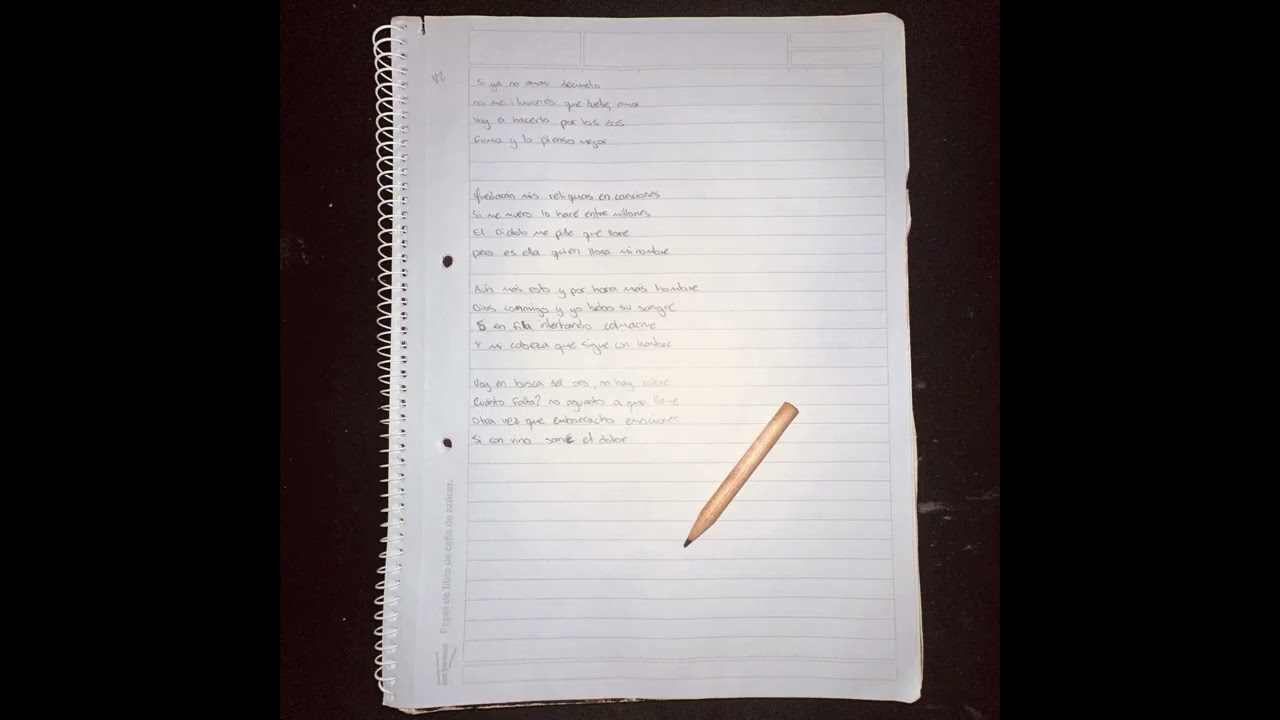 V2
Si ya no amas decimelo
no me ilusiones que duele, amor
Voy a hacerlo por los dos
Fumo y lo pienso mejor
Quedarán mis reliquias en canciones
Si me muero lo haré entre millones
El Diablo me pide que llore
pero es ella quien llora mi nombre
Aún más roto y por hora más hombre
Dios conmigo y yo bebo su sangre
en fila intentando calmarme
Y mi cabeza que sigue con hambre
Voy en busca del oro, no hay cobre
Cuánto Falta? no aguanto a que llame
Otra vez que emborracho emociones
Si con vino sané el dolor
Papel de fibra de caña de azúcar.